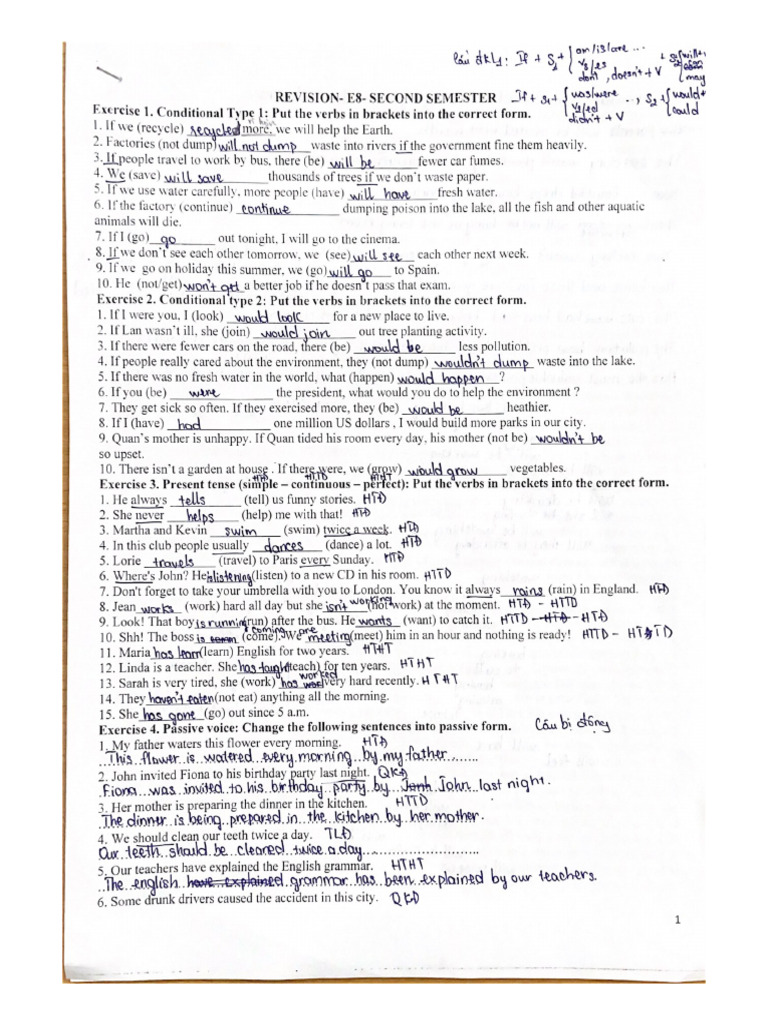 Câu đkl1: If + S1 + { am/is/are ...
Vs/es
don't, doesn't + V
+ S2 { will +
can
may
REVISION- E8- SECOND SEMESTER If + S1 + { was/were
V2/ed
didn't + V
.., S2 + { would +
could
Exercise 1. Conditional Type 1: Put the verbs in brackets into the correct form.
1. If we (recycle) recycled more, we will help the Earth.
2. Factories (not dump) will not dump waste into rivers if the government fine them heavily.
3. If people travel to work by bus, there (be) will be fewer car fumes.
4. We (save) will save thousands of trees if we don't waste paper.
5. If we use water carefully, more people (have) will have fresh water.
6. If the factory (continue) continue dumping poison into the lake, all the fish and other aquatic
animals will die.
7. If I (go) go out tonight, I will go to the cinema.
8. If we don't see each other tomorrow, we (see) will see each other next week.
9. If we go on holiday this summer, we (go) will go to Spain.
10. He (not/get) won't get a better job if he doesn't pass that exam.
Exercise 2. Conditional type 2: Put the verbs in brackets into the correct form.
1. If I were you, I (look) would look for a new place to live.
2. If Lan wasn't ill, she (join) would join out tree planting activity.
3. If there were fewer cars on the road, there (be) would be less pollution.
4. If people really cared about the environment, they (not dump) wouldn't dump waste into the lake.
5. If there was no fresh water in the world, what (happen) would happen ?
6. If you (be) were the president, what would you do to help the environment ?
7. They get sick so often. If they exercised more, they (be) would be heathier.
8. If I (have) had one million US dollars , I would build more parks in our city.
9. Quan's mother is unhappy. If Quan tided his room every day, his mother (not be) wouldn't be
so upset.
10. There isn't a garden at house . If there were, we (grow) would grow vegetables.
HTĐ HTTD HTHT
Exercise 3. Present tense (simple – continuous – perfect): Put the verbs in brackets into the correct form.
1. He always tells (tell) us funny stories. HTĐ
2. She never helps (help) me with that! HTĐ
3. Martha and Kevin swim (swim) twice a week. HTĐ
4. In this club people usually dances (dance) a lot. HTĐ
5. Lorie travels (travel) to Paris every Sunday. HTĐ
6. Where's John? He listening (listen) to a new CD in his room. HTTD
7. Don't forget to take your umbrella with you to London. You know it always rains (rain) in England. HTĐ
8. Jean works (work) hard all day but she isn't working (not work) at the moment. HTĐ - HTTD
9. Look! That boy is running (run) after the bus. He wants (want) to catch it. HTTD - HTĐ - HTĐ
10. Shh! The boss is coming (come). We are meeting (meet) him in an hour and nothing is ready! HTTD - HTTD
11. Maria has learn (learn) English for two years. HTHT
12. Linda is a teacher. She has taught (teach) for ten years. HTHT
13. Sarah is very tired, she (work) has worked very hard recently. HTHT
14. They haven't eaten (not eat) anything all the morning.
15. She has gone (go) out since 5 a.m.
Exercise 4. Passive voice: Change the following sentences into passive form. Câu bị động
1. My father waters this flower every morning. HTĐ
This flower is watered every morning by my father
2. John invited Fiona to his birthday party last night. QKĐ
Fiona was invited to his birthday party by Jonh John last night.
3. Her mother is preparing the dinner in the kitchen. HTTD
The dinner is being prepared in the kitchen by her mother.
4. We should clean our teeth twice a day. TLĐ
Our teeth should be cleaned twice a day
5. Our teachers have explained the English grammar. HTHT
The english have explained grammar has been explained by our teachers.
6. Some drunk drivers caused the accident in this city. QKĐ
1